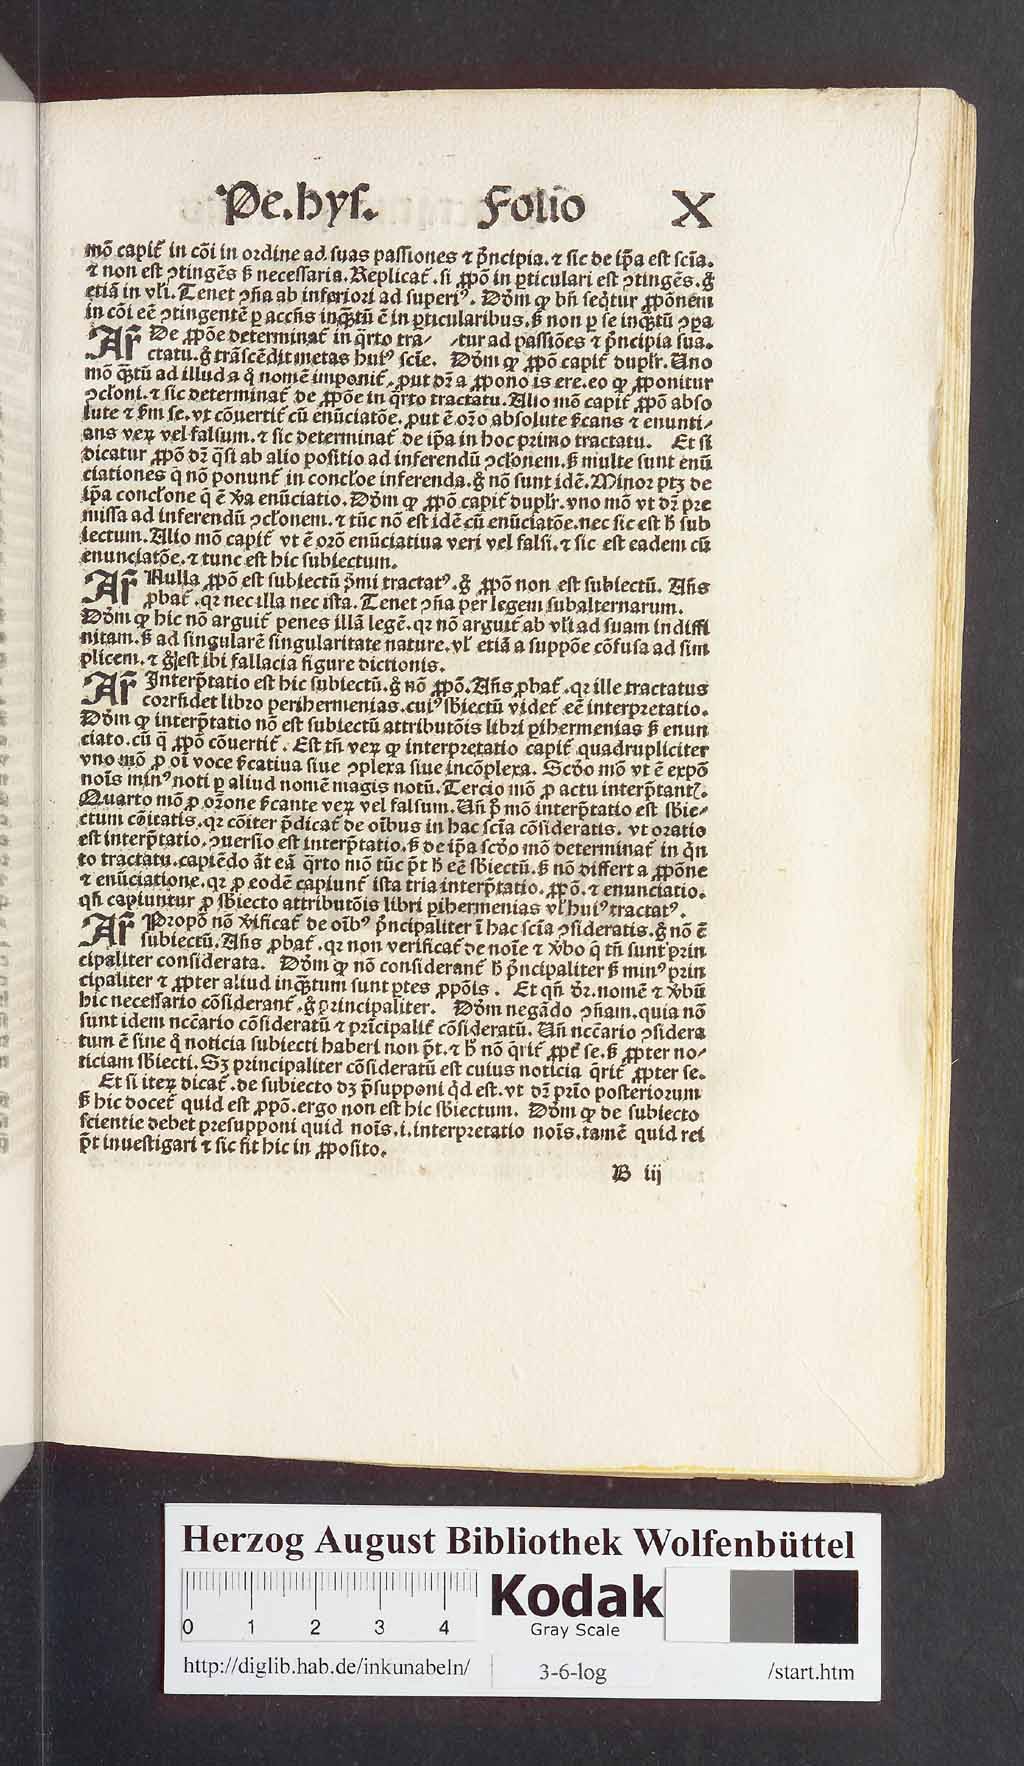 Pe.hys. Folio X
mō capit᷑ in cōi in ordine ad suas passiones ⁊ p̄ncipia.⁊ sic de ip̄a est scīa.
⁊ non est ꝯtingēs ẜ necessaria.Replicat᷑.si ꝓpō in ꝑticulari est ꝯtingēs.g̊
etiā in vl̄i.Tenet ꝯn̄a ab inferiori ad superiꝰ. Dd̓m ꝙ bn̄ seq̄tur ꝓpōnem
in cōi eē ꝯtingentē ꝑ accn̄s inq̄ꝫtū ē in ꝑticularibus.ẜ non ꝑ se inq̄ꝫtū ꝯꝑa
Ar̄ De ꝓpōe determinat᷑ in q̄rto tra⸗ ⸗tur ad passiōes ⁊ p̄ncipia sua.
ctatu.g̊ trāscēdit metas huiꝰ scīe. Dd̓m ꝙ ꝓpō capit᷑ dupl̓r.Uno
mō q̄ꝫtū ad illud a q̊ nomē imponit᷑.put dr̄ a ꝓpono is ere.eo ꝙ ꝓponitur
ꝯcl̓oni.⁊ sic determinat᷑ de ꝓpōe in q̄rto tractatu.Alio mō capit᷑ ꝓpō abso
lute ⁊ ẜm se.vt cōuertit᷑ cū enūciatōe.put ē or̄o absolute ẜcans ⁊ enunti⸗
ans veꝝ vel falsum.⁊ sic determinat᷑ de ip̄a in hoc primo tractatu. Et si
dicatur ꝓpō dr̄ q̄si ab alio positio ad inferendū ꝯcl̓onem.ẜ multe sunt enū
ciationes q̄ nō ponunt᷑ in concl̓oe inferenda.g̊ nō sunt idē.Minor ptꝫ de
ip̄a concl̓one q̄ ē v̓a enūciatio.Dd̓m ꝙ ꝓpō capit᷑ dupl̓r.vno mō vt dr̄ pre
missa ad inferendū ꝯcl̓onem.⁊ tūc nō est idē cū enūciatōe.nec sic est h̄ sub
iectum.Alio mō capit᷑ vt ē orō enūciatiua veri vel falsi.⁊ sic est eadem cū
enunciatōe.⁊ tunc est hic subiectum.
Ar̄ Nulla ꝓpō est subiectū p̄mi tractatꝰ.g̊ ꝓpō non est subiectū. An̄s
ꝓbat᷑.qr nec illa nec ista.Tenet ꝯn̄a per legem subalternarum.
Dd̓m ꝙ hic nō arguit᷑ penes illā legē.qr nō arguit᷑ ab vl̄i ad suam indiffi
nitam.ẜ ad singularē singularitate nature.vl̓ etiā a suppōe cōfusa ad sim
plicem.⁊ g̊ est ibi fallacia figure dictionis.
Ar̄ Interp̄tatio est hic subiectū.g̊ nō ꝓpō.An̄s ꝓbat᷑.qr ille tractatus
corr̄ndet libro perihermenias.cuiꝰ sb̓iectū videt᷑ eē interpretatio.
Dd̓m ꝙ interp̄tatio nō est subiectū attributōis libri ꝑihermenias ẜ enun
ciato.cū q̄ ꝓpō cōuertit᷑. Est tn̄ veꝝ ꝙ interpretatio capit᷑ quadrupliciter
vno mō ꝓ oī voce ẜcatiua siue ꝯplexa siue incōplexa. Scd̓o mō vt ē expō
noīs minꝰ noti ꝑ aliud nomē magis notū.Tercio mō ꝓ actu interp̄tantꝭ.
Quarto mō ꝓ or̄one ẜcante veꝝ vel falsum.Un̄ p̄ mō interp̄tatio est sb̓ie⸗
ctum cōitatis.qr cōiter p̄dicat᷑ de oībus in hac scīa cōsideratis. vt oratio
est interp̄tatio.ꝯuersio est interp̄tatio.ẜ de ip̄a scd̓o mō determinat᷑ in q̄n
to tractatu.capiēdo āt eā q̄rto mō tūc p̄t h̄ eē sb̓iectū.ẜ nō differt a ꝓpōne
⁊ enūciatione.qr ꝓ eodē capiunt᷑ ista tria interp̄tatio.ꝓpō.⁊ enunciatio.
qn̄ capiuntur ꝓ sb̓iecto attributōis libri ꝑihermenias vl̓ huiꝰ tractatꝰ.
Ar̄ Propō nō v̓ificat᷑ de oībꝰ p̄ncipaliter ī hac scīa ꝯsideratis.g̊ nō ē
subiectū.An̄s ꝓbat᷑.qr non verificat᷑ de noīe ⁊ v̓bo q̄ tn̄ sunt prin
cipaliter considerata. Dd̓m ꝙ nō considerant᷑ h̄ p̄ncipaliter ẜ minꝰ prin
cipaliter ⁊ ꝓpter aliud inq̄ꝫtum sunt ꝑtes ꝓpōis. Et qn̄ dr̄.nomē ⁊ v̓bū
hic necessario cōsiderant᷑.g̊ principaliter. Dd̓m negādo ꝯn̄am.quia nō
sunt idem nccārio cōsideratū ⁊ prīcipalit᷑ cōsideratū. Un̄ nccārio ꝯsidera
tum ē sine q̊ noticia subiecti haberi non p̄t.⁊ h̄ nō q̄rit᷑ ꝓpt᷑ se.ẜ ꝓpter no⸗
ticiam sb̓iecti.Sꝫ principaliter cōsideratū est cuius noticia q̄rit᷑ ꝓpter se.
Et si iteꝝ dicat᷑.de subiecto dꝫ p̄supponi q̇d est.vt dr̄ prīo posteriorum
ẜ hic docet᷑ quid est ꝓpō.ergo non est hic sb̓iectum. Dd̓m ꝙ de subiecto
scientie debet presupponi quid noīs.i.interpretatio noīs.tamē quid rei
p̄t inuestigari ⁊ sic fit hic in ꝓposito.
B iij
Herzog August Bibliothek Wolfenbüttel
0 1 2 3 4
Kodak
Gray Scale
http://diglib.hab.de/inkunabeln/ 3-6-log /start.htm